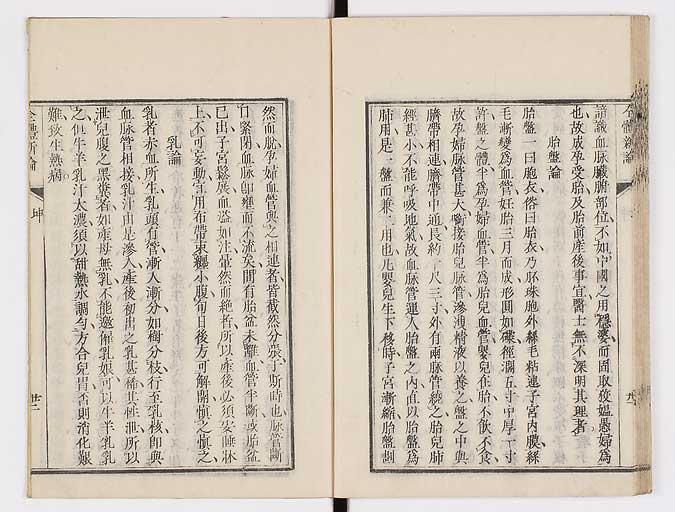 諳識血脉臟腑部位不如中國之用穩婆而固取疫媪愚婦為
也故成孕受胎及胎前產後事宜醫士無不深明其理者
胎盤論
胎盤一曰胞衣俗曰胎衣乃胚珠胞外絲毛粘連子宮內膜絲
毛漸變爲血管妊胎三月而成形圓如碟徑濶五寸中厚一寸
許盤之體半爲孕婦血管半爲胎兒血管嬰兒在胎不飲不食
故孕婦脉管甚大銜接胎兒脉管滲洩精液以養之盤之中與
臍帶相連臍帶中通長約一尺八三寸外有兩脉管繞之胎兒肺
經甚小不能呼吸地氣故血脉管運入胎盤之內直以胎盤爲
肺用是一盤而兼二用也凡嬰兒生下核時子宮漸縮胎盤劃
然而脫孕婦血管與之相連者皆截然分張于斯時也脉管斷
口緊閉血脉卽壅而不流矣間有胎盆未離血管半斷或胎盆
已出子宮鬆展血溢如注暈然而絕者所以產後必須安睡牀
上不可妄動言用布帶束纏小腹旬日後方可解開慎之慎之
乳論
乳者赤血所生乳頭有管漸入漸分如樹分枝行至乳核卽與
血脉管相接乳汁由是滲入產後初出之乳甚稀其性泄所以
泄兒腹之黑糞者如產母無乳不能邀僱乳娘可以牛羊乳乳
之但牛羊乳汁太濃須以甜熱水調勻方合兒胃否則消化艱
難致生熱病
全體新論
坤
廿二